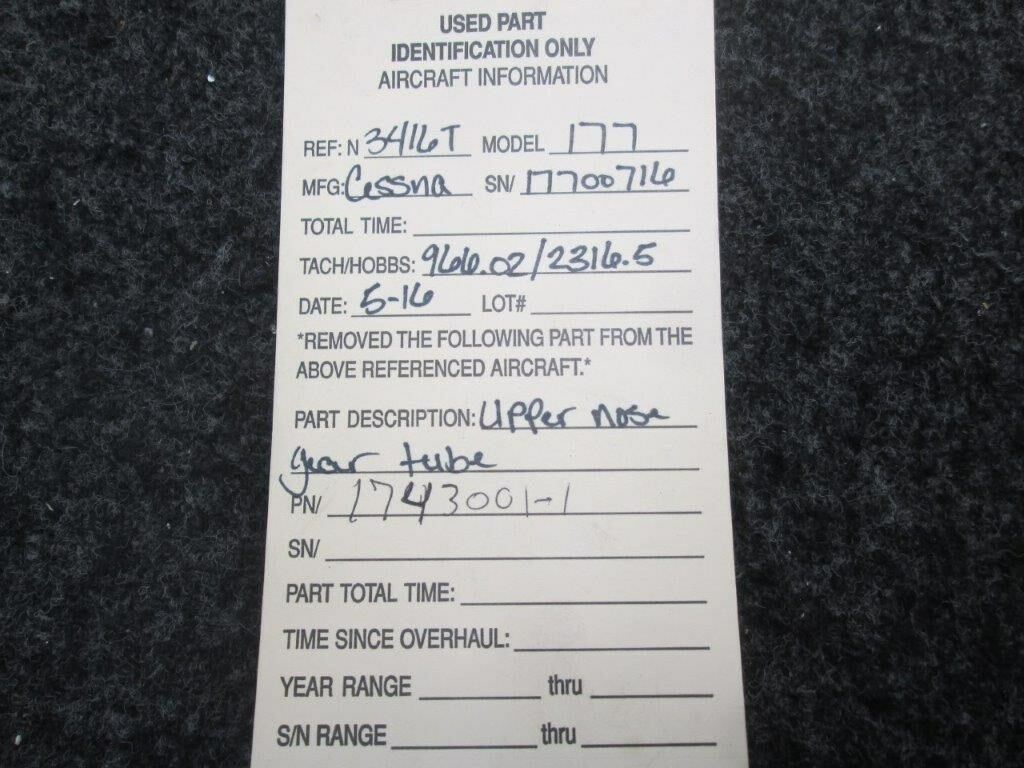 USED PART
IDENTIFICATION ONLY
AIRCRAFT INFORMATION
REF: N 3416T MODEL 177
MFG: Cessna SN/ 17700716
TOTAL TIME:
TACH/HOBBS: 966.02/2316.5
DATE: 5-16 LOT#
*REMOVED THE FOLLOWING PART FROM THE
ABOVE REFERENCED AIRCRAFT.*
PART DESCRIPTION: Upper nose
gear tube
PN/ 1743001-1
SN/
PART TOTAL TIME:
TIME SINCE OVERHAUL:
YEAR RANGE thru
S/N RANGE thru